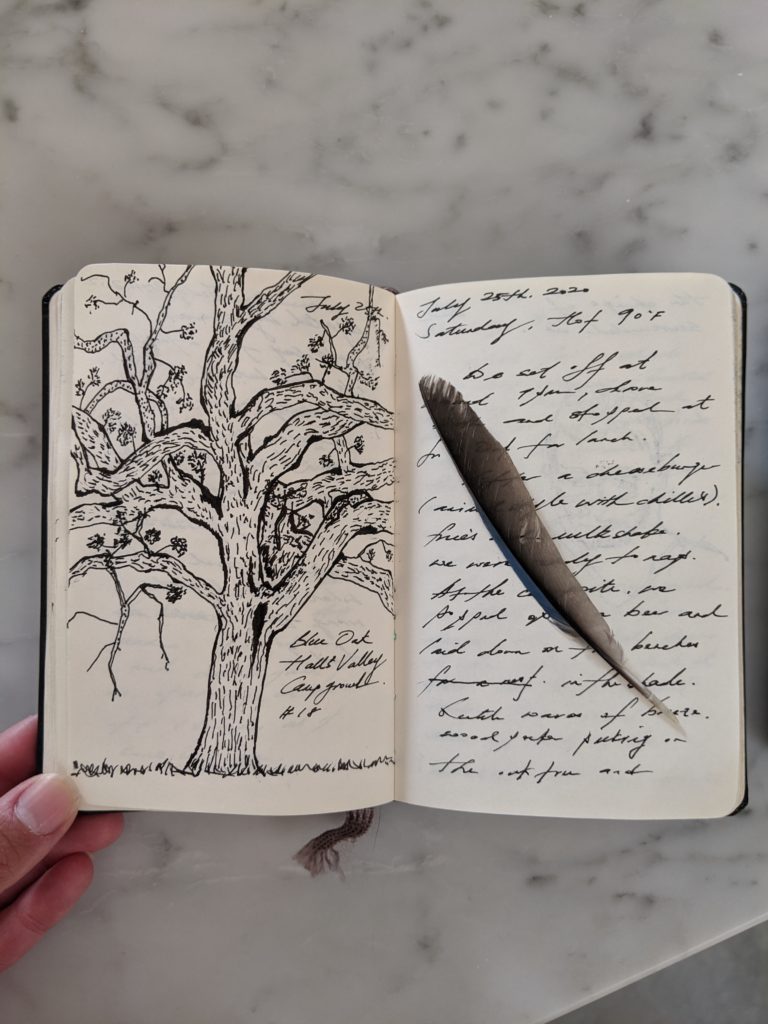 July 25th.
Blue Oak
Hall's Valley
Campground.
#18
July 25th. 2020
Saturday, Hot 90°F
set off at
1pm, drove
and stopped at
for lunch.
a cheeseburger
with chillis).
fries milkshake.
we were to nap.
At the we
popped beer and
laid down on the benches
in the shade.
waves of breeze.
woodpecker picking on
the oak tree and